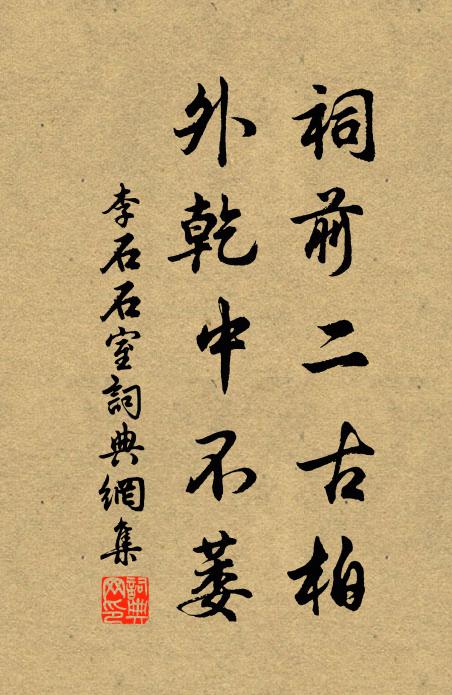 祠前二古柏
外乾中不萎
李石石室詞典網集
詞典
网印